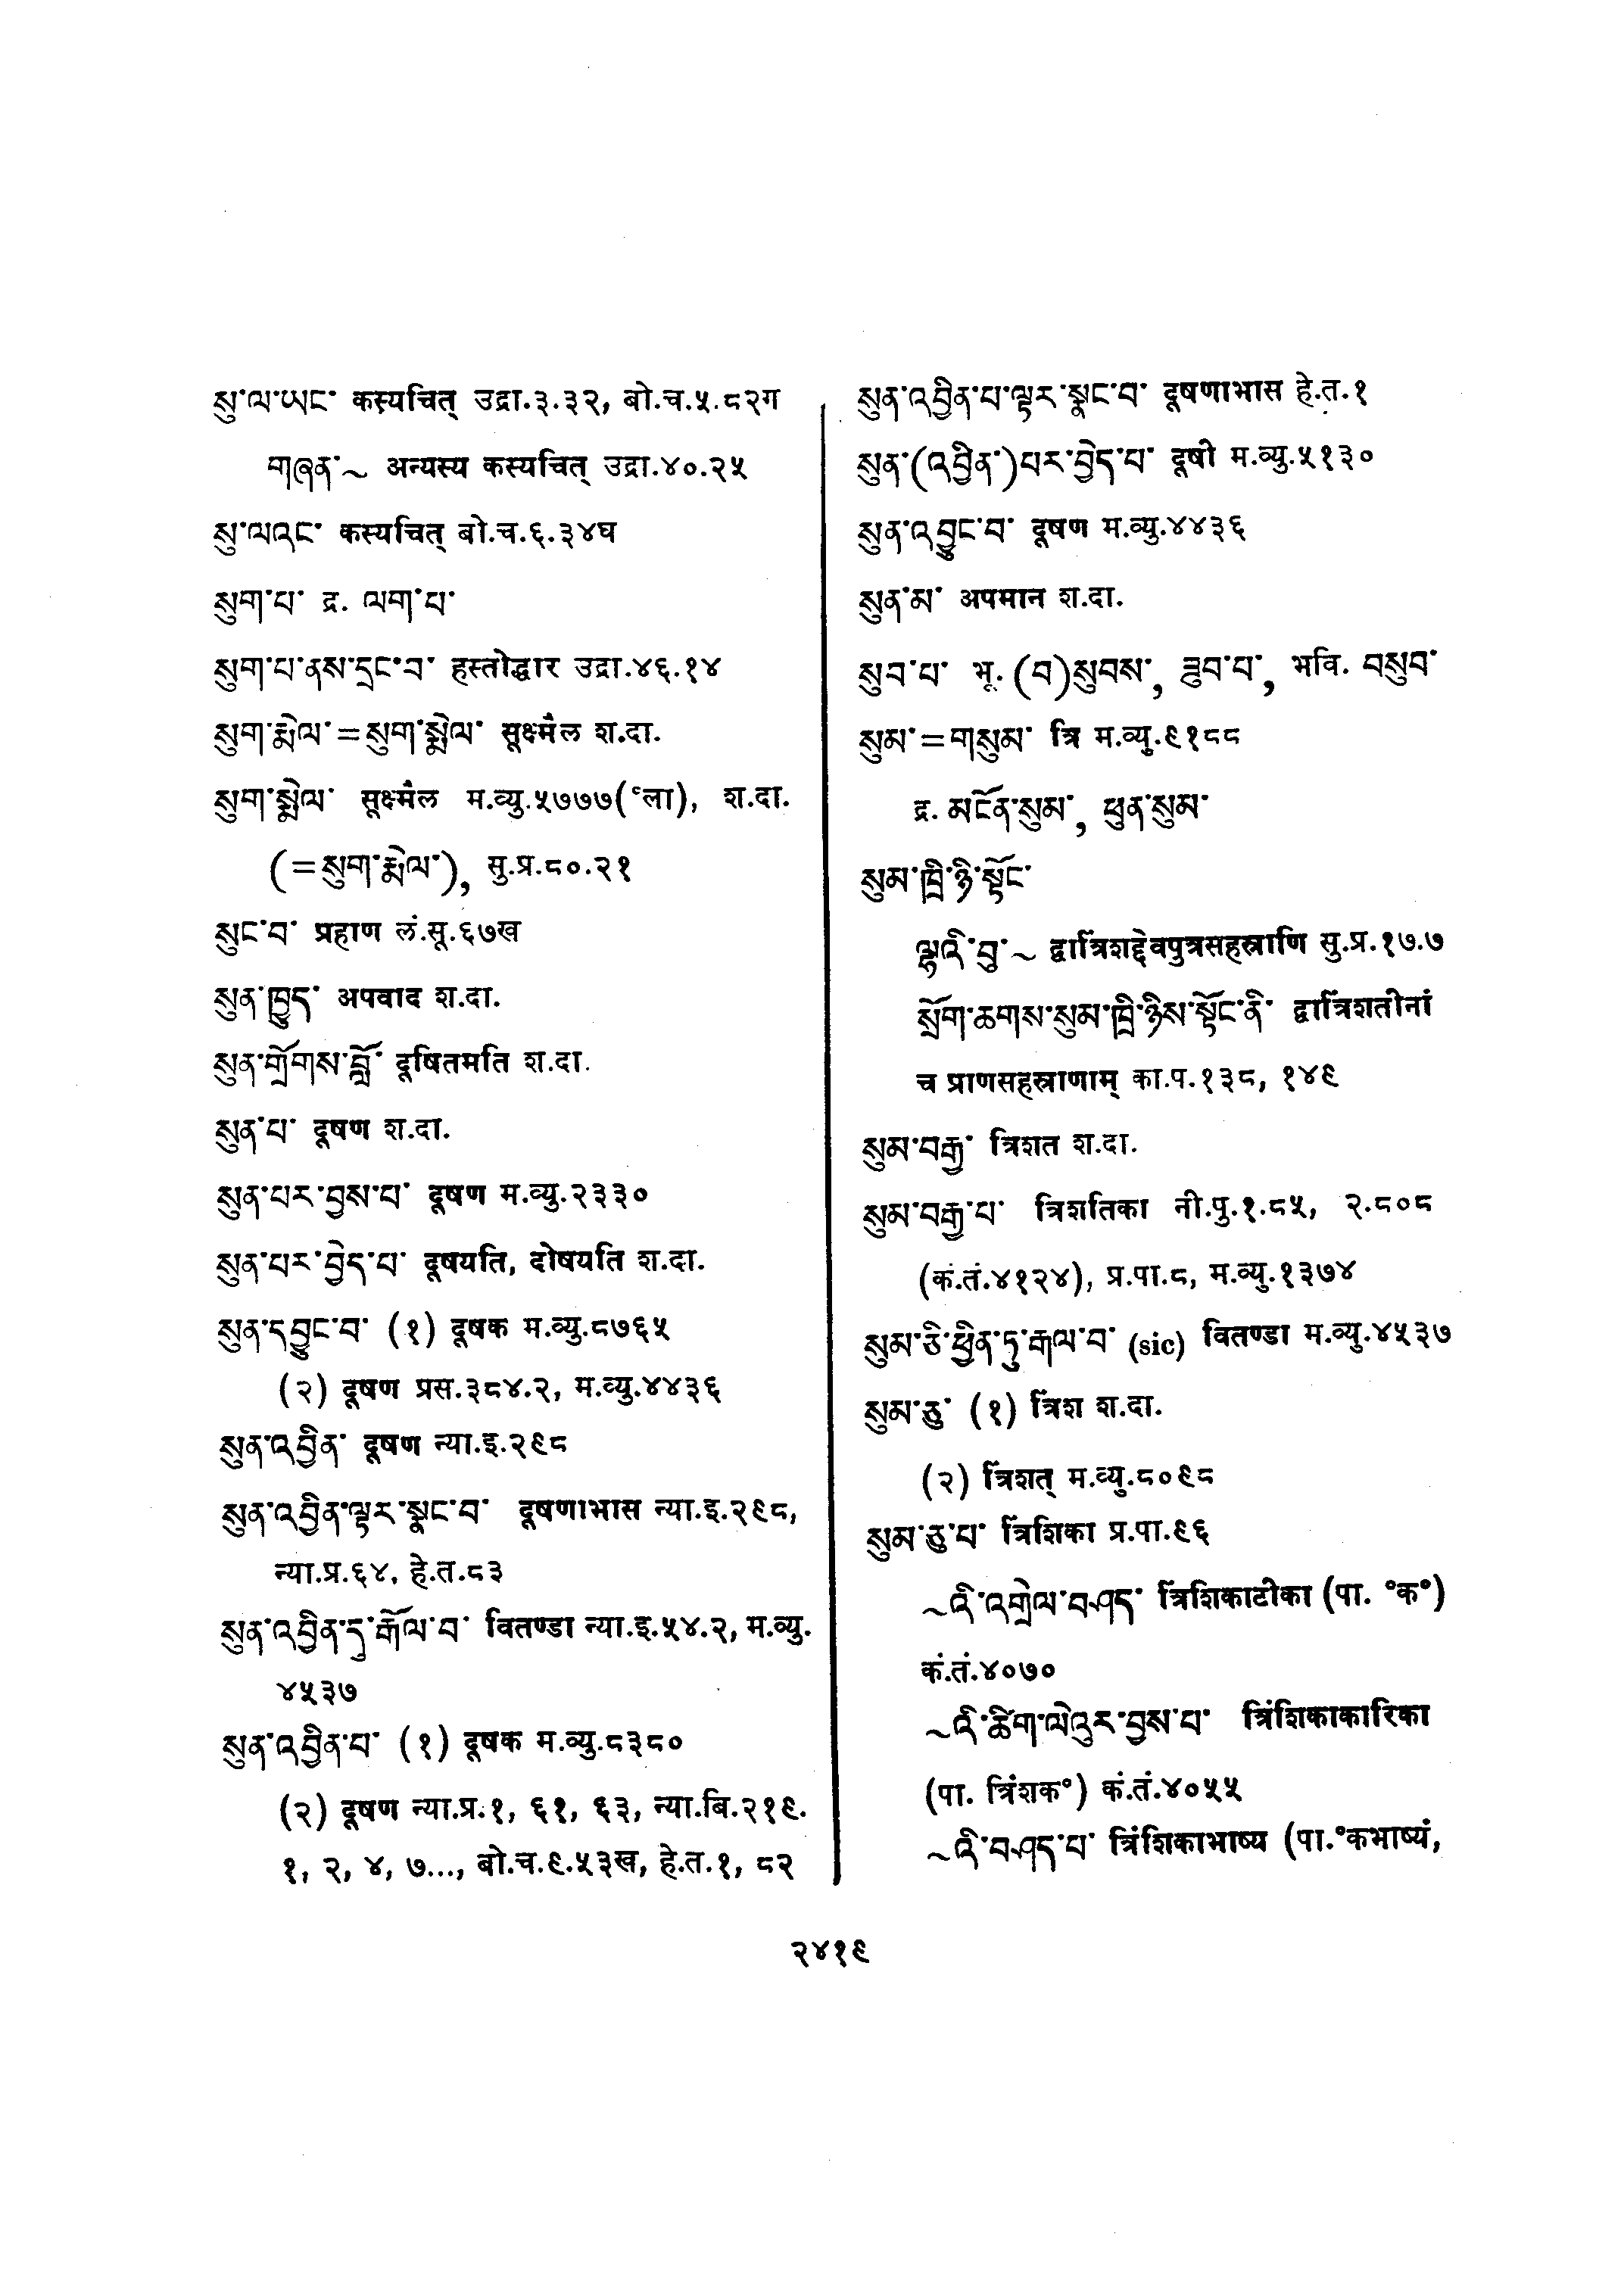 སུ་ལ་ཡང་ कस्यचित् उद्रा.३.३२, बो.च.५.८२ग
གཞན་~ अन्यस्य कस्यचित् उद्रा.४०.२५
སུ་ལའང་ कस्यचित् बो.च.६.३४घ
སུག་པ་ द्र. ལག་པ་
སུག་པ་ནས་དྲང་བ་ हस्तोद्धार उद्रा.४६.१४
སུག་རྨེལ་=སུག་སྨེལ་ सूक्ष्मैल श.दा.
སུག་སྨེལ་ सूक्ष्मैल म.व्यु.५७७७(°ला), श.दा.
(=སུག་རྨེལ་), सु.प्र.८०.२१
སུང་བ་ प्रहाण लं.सू.६७ख
སུན་ཁྱུད་ अपवाद श.दा.
སུན་གྲོགས་བློ་ दूषितमति श.दा.
སུན་པ་ दूषण श.दा.
སུན་པར་བྱས་པ་ दूषण म.व्यु.२३३०
སུན་པར་བྱེད་པ་ दूषयति, दोषयति श.दा.
སུན་དབྱུང་བ་ (१) दूषक म.व्यु.८७६५
(२) दूषण प्रस.३८४.२, म.व्यु.४४३६
སུན་འབྱིན་ दूषण न्या.इ.२९८
སུན་འབྱིན་ལྟར་སྣང་བ་ दूषणाभास न्या.इ.२९८,
न्या.प्र.६४, हे.त.८३
སུན་འབྱིན་དུ་རྒོལ་བ་ वितण्डा न्या.इ.५४.२, म.व्यु.
४५३७
སུན་འབྱིན་པ་ (१) दूषक म.व्यु.८३८०
(२) दूषण न्या.प्र.१, ६१, ६३, न्या.बि.२१९.
१, २, ४, ७..., बो.च.९.५३ख, हे.त.१, ८२
སུན་འབྱིན་པ་ལྟར་སྣང་བ་ दूषणाभास हे.त.१
སུན་(འབྱིན་)པར་བྱེད་པ་ दूषी म.व्यु.५१३०
སུན་འབྱུང་བ་ दूषण म.व्यु.४४३६
སུན་མ་ अपमान श.दा.
སུབ་པ་ भू. (བ)སུབས་, ཟུབ་པ་, भवि. བསུབ་
སུམ་=གསུམ་ त्रि म.व्यु.९१८८
द्र. མངོན་སུམ་, ཕུན་སུམ་
སུམ་ཁྲི་ཉི་སྟོང་
ལྷའི་བུ་~ द्वात्रिंशद्देवपुत्रसहस्राणि सु.प्र.१७.७
སྲོག་ཆགས་སུམ་ཁྲི་ཉིས་སྟོང་ནི་ द्वात्रिंशतीनां
च प्राणसहस्राणाम् का.प.१३८, १४९
སུམ་བརྒྱ་ त्रिशत श.दा.
སུམ་བརྒྱ་པ་ त्रिशतिका नी.पु.१.८५, २.८०८
(कं.तं.४१२४), प्र.पा.८, म.व्यु.१३७४
སུམ་ཅི་ཕྱིན་ཏུ་རྒལ་བ་ (sic) वितण्डा म.व्यु.४५३७
སུམ་ཅུ་ (१) त्रिंश श.दा.
(२) त्रिंशत् म.व्यु.८०९८
སུམ་ཅུ་པ་ त्रिंशिका प्र.पा.९६
~འི་འགྲེལ་བཤད་ त्रिंशिकाटीका (पा. °क°)
कं.तं.४०७०
~འི་ཚིག་ལེའུར་བྱས་པ་ त्रिंशिकाकारिका
(पा. त्रिंशक°) कं.तं.४०५५
~འི་བཤད་པ་ त्रिंशिकाभाष्य (पा.°कभाष्यं,
२४१९